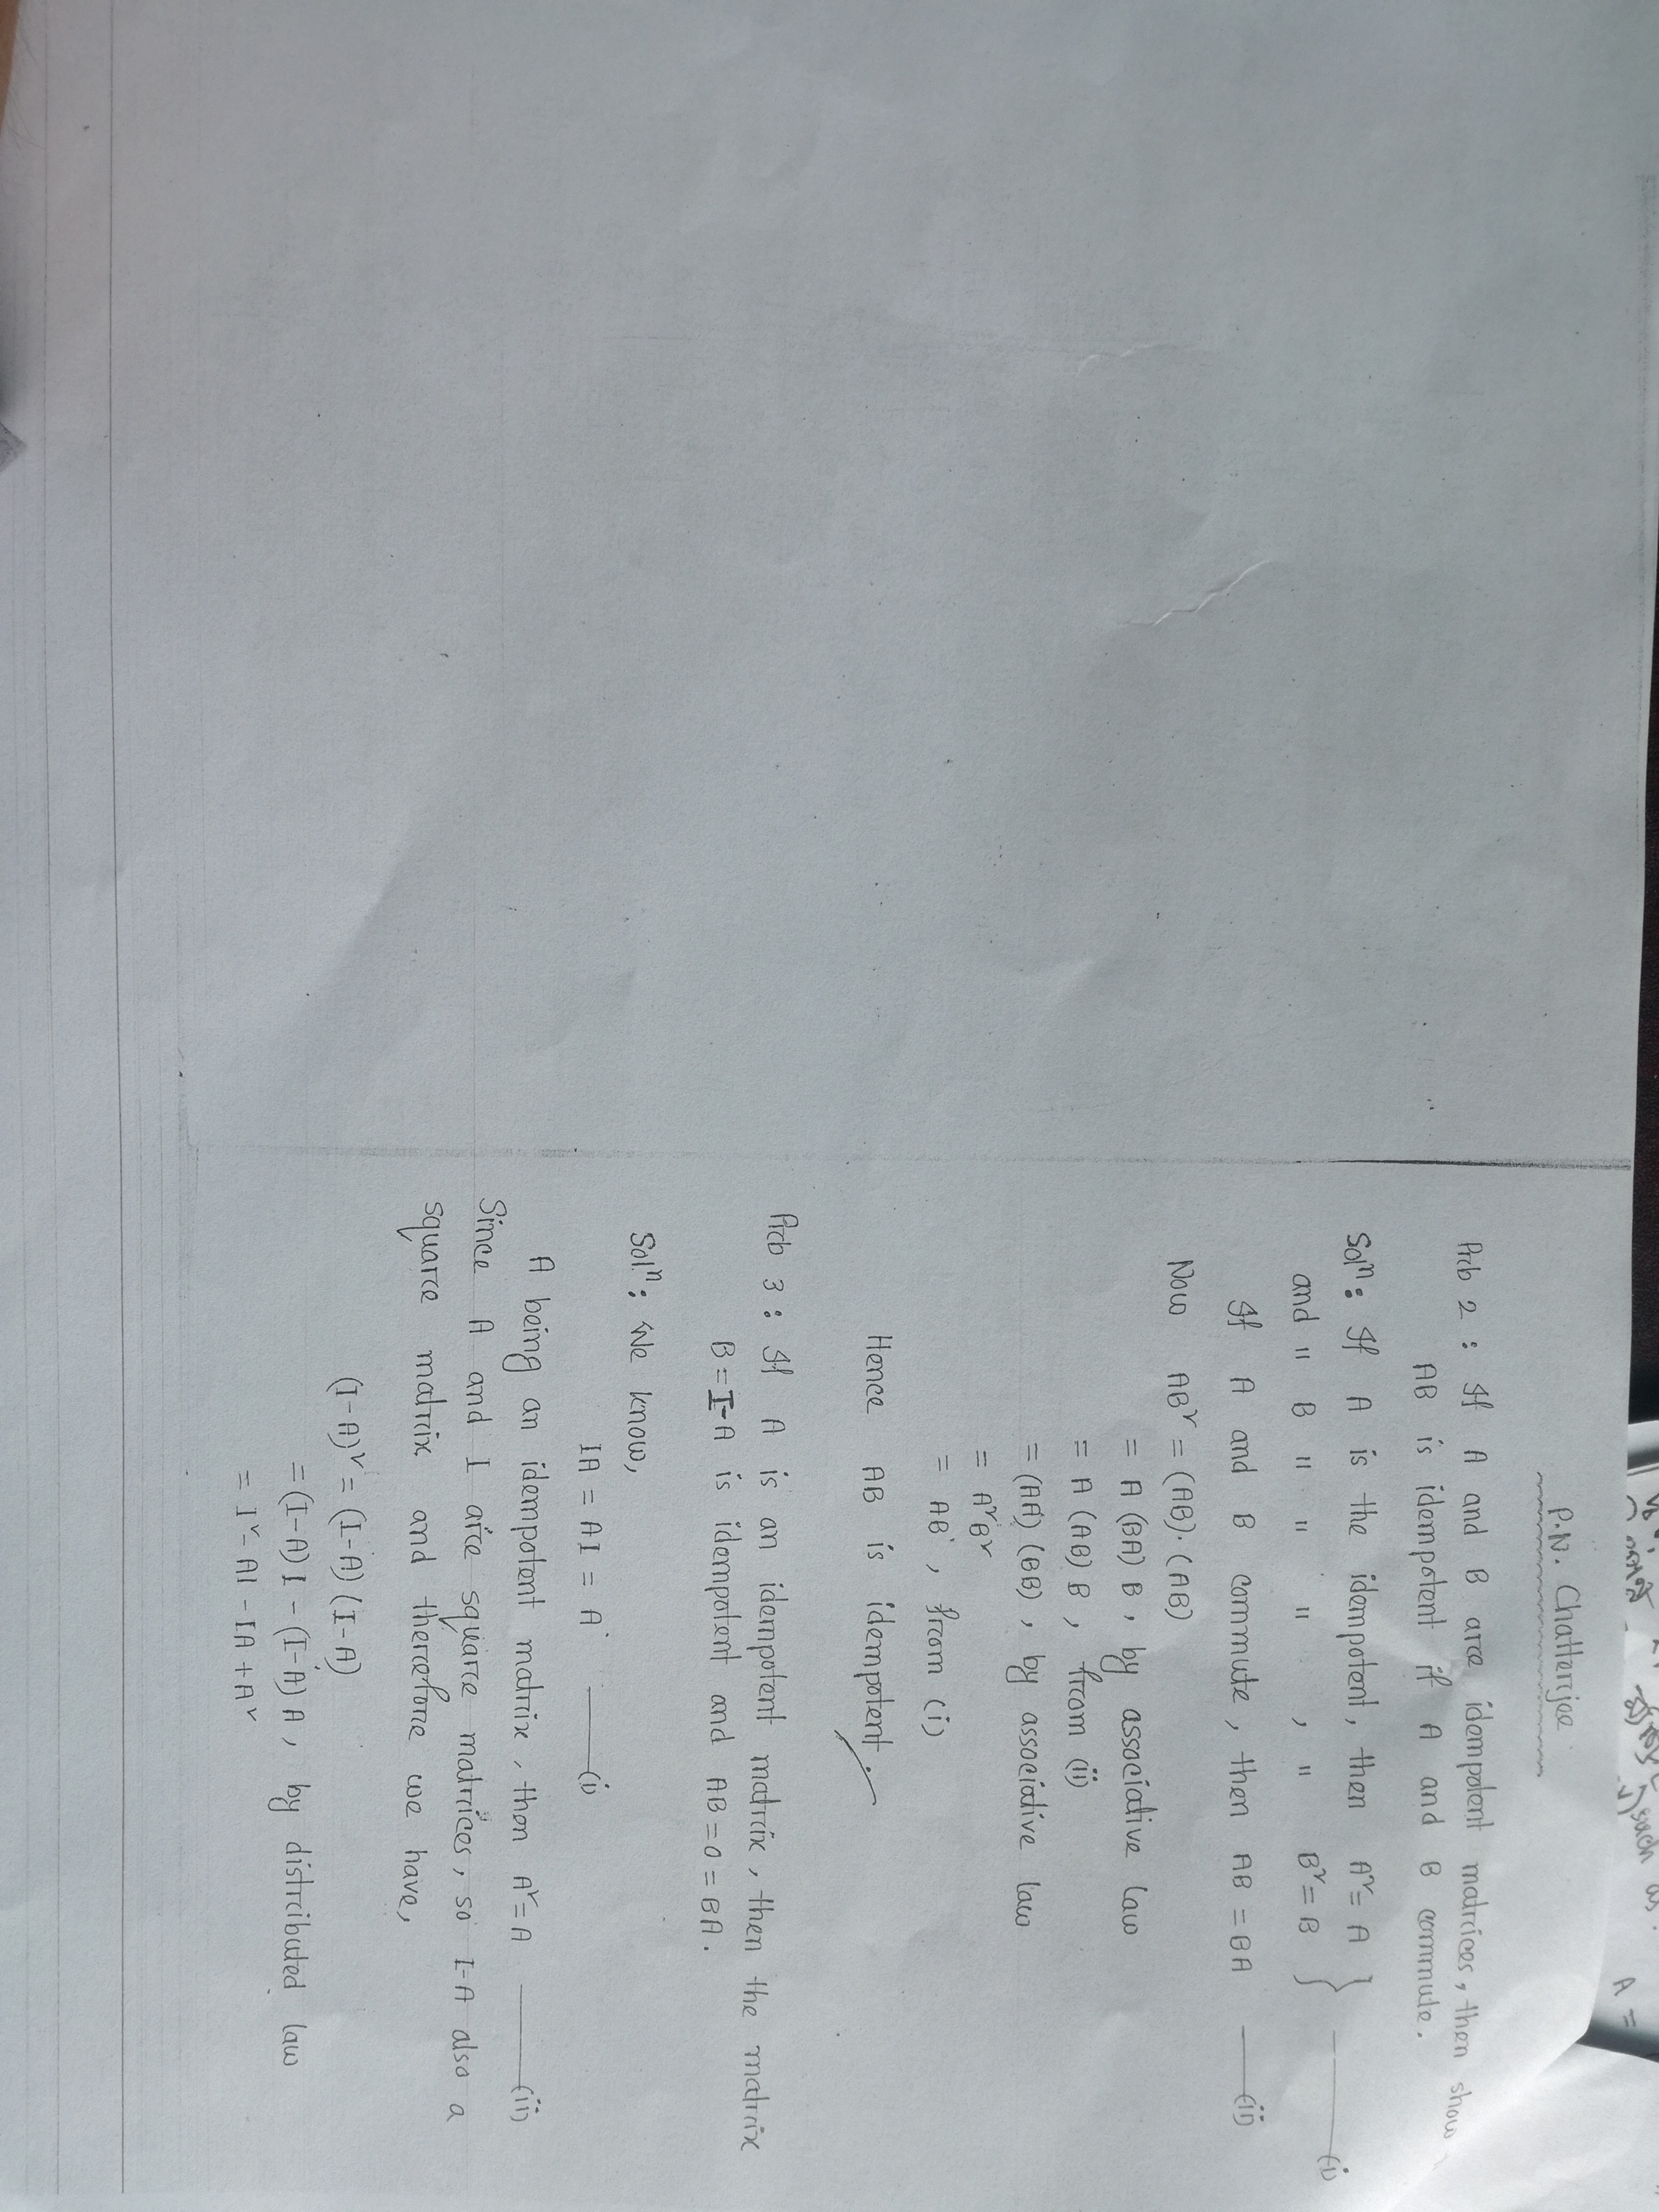 such as
A =
P.N. Chatterjee
Prob 2 : If A and B are idempotent matrices, then show
AB is idempotent if A and B commute.
Solⁿ: If A is the idempotent, then A² = A } —— (i)
and " B " " " , " B² = B
If A and B commute, then AB = BA —— (ii)
Now AB² = (AB)·(AB)
= A (BA) B , by associative law
= A (AB) B , from (ii)
= (AA) (BB) , by associative law
= A²B²
= AB , from (i)
Hence AB is idempotent.
Prob 3 : If A is an idempotent matrix, then the matrix
B = I-A is idempotent and AB = 0 = BA.
Solⁿ: We know,
IA = AI = A —— (i)
A being an idempotent matrix, then A² = A —— (ii)
Since A and I are square matrices, so I-A also a
square matrix and therefore we have,
(I-A)² = (I-A) (I-A)
= (I-A) I - (I-A) A , by distributed law
= I² - AI - IA + A²